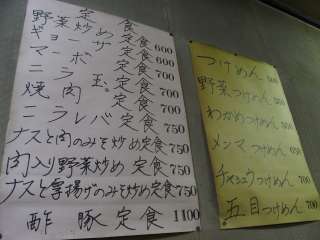 定食
野菜炒め 定食 600
ギョーザ 定食 600
マーボ 定食 700
ニラ玉 定食 700
焼肉 定食 700
ニラレバ 定食 750
ナスと肉のみそ炒め 定食 750
肉入り野菜炒め 定食 750
ナスと厚揚げのみそ炒め定食 750
酢豚定食 1100
つけめん
野菜つけめん
わかめつけめん
メンマつけめん
チャシュウつけめん 700
五目つけめん 700